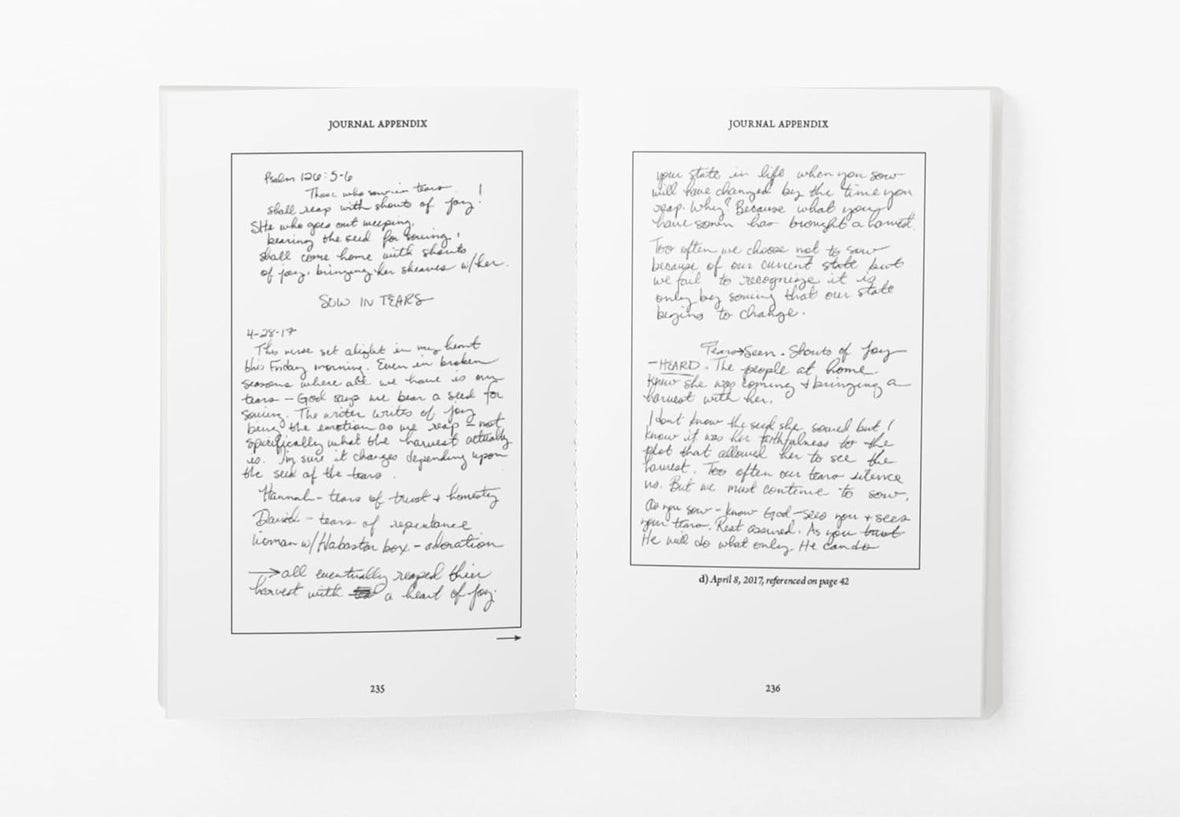 JOURNAL APPENDIX
Psalm 126:5-6
Those who sow in tears
shall reap with shouts of joy!
SHe who goes out weeping,
bearing the seed for sowing,
shall come home with shouts
of joy, bringing her sheaves w/her.
SOW IN TEARS
4-28-17
This verse set alight in my heart
this Friday morning. Even in broken
seasons where all we have is our
tears - God says we bear a seed for
sowing. The writer writes of joy
being the emotion as we reap - not
specifically what the harvest actually
is. I'm sure it changes depending upon
the seed of the tears.
Hannah - tears of trust + honesty
David - tears of repentance
Woman w/Alabastar box - adoration
→ all eventually reaped thier
harvest with a heart of joy.
→
235
JOURNAL APPENDIX
your state in life when you sow
will have changed by the time you
reap. Why? Because what you
have sown has brought a harvest.
Too often we choose not to sow
because of our current state but
we fail to recognize it is
only by sowing that our state
begins to change.
Tears→Seen. Shouts of Joy
-HEARD. The people at home
knew she was coming + bringing a
harvest with her.
I don't know the seed she sowed but I
know it was her faithfulness to the
plot that allowed her to see the
harvest. Too often our tears silence
us. But we must continue to sow.
As you sow - know God - sees you + sees
your tears. Rest assured. As you trust
He will do what only He can do
d) April 8, 2017, referenced on page 42
236